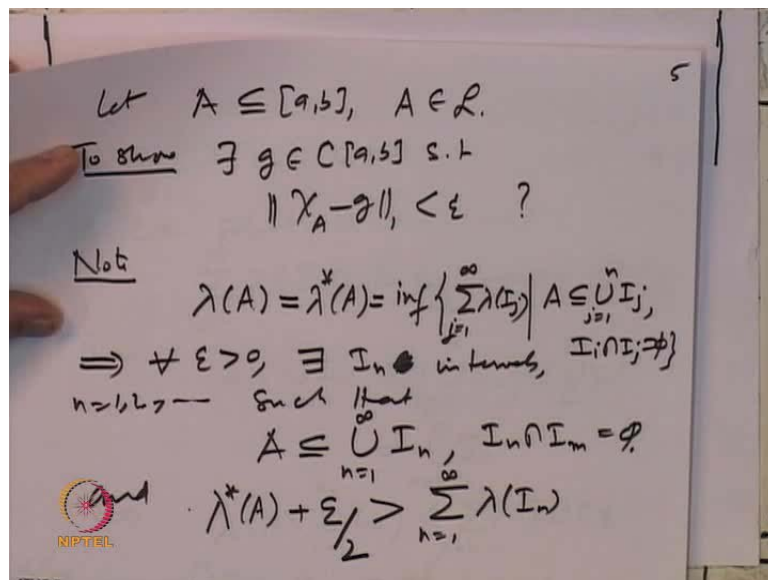 5
Let A ⊆ [a,b], A ∈ L.
To show ∃ g ∈ C[a,b] s.t
‖ χ_A − g ‖₁ < ε ?
Note
λ(A) = λ*(A) = inf { ∑_{j=1}^{∞} λ(I_j) | A ⊆ ⋃_{j=1}^{n} I_j,
⟹ ∀ ε > 0, ∃ I_n intervals, I_i ∩ I_j = φ }
n=1,2,--- Such that
A ⊆ ⋃_{n=1}^{∞} I_n, I_n ∩ I_m = φ.
and λ*(A) + ε/2 > ∑_{n=1}^{∞} λ(I_n)
NPTEL